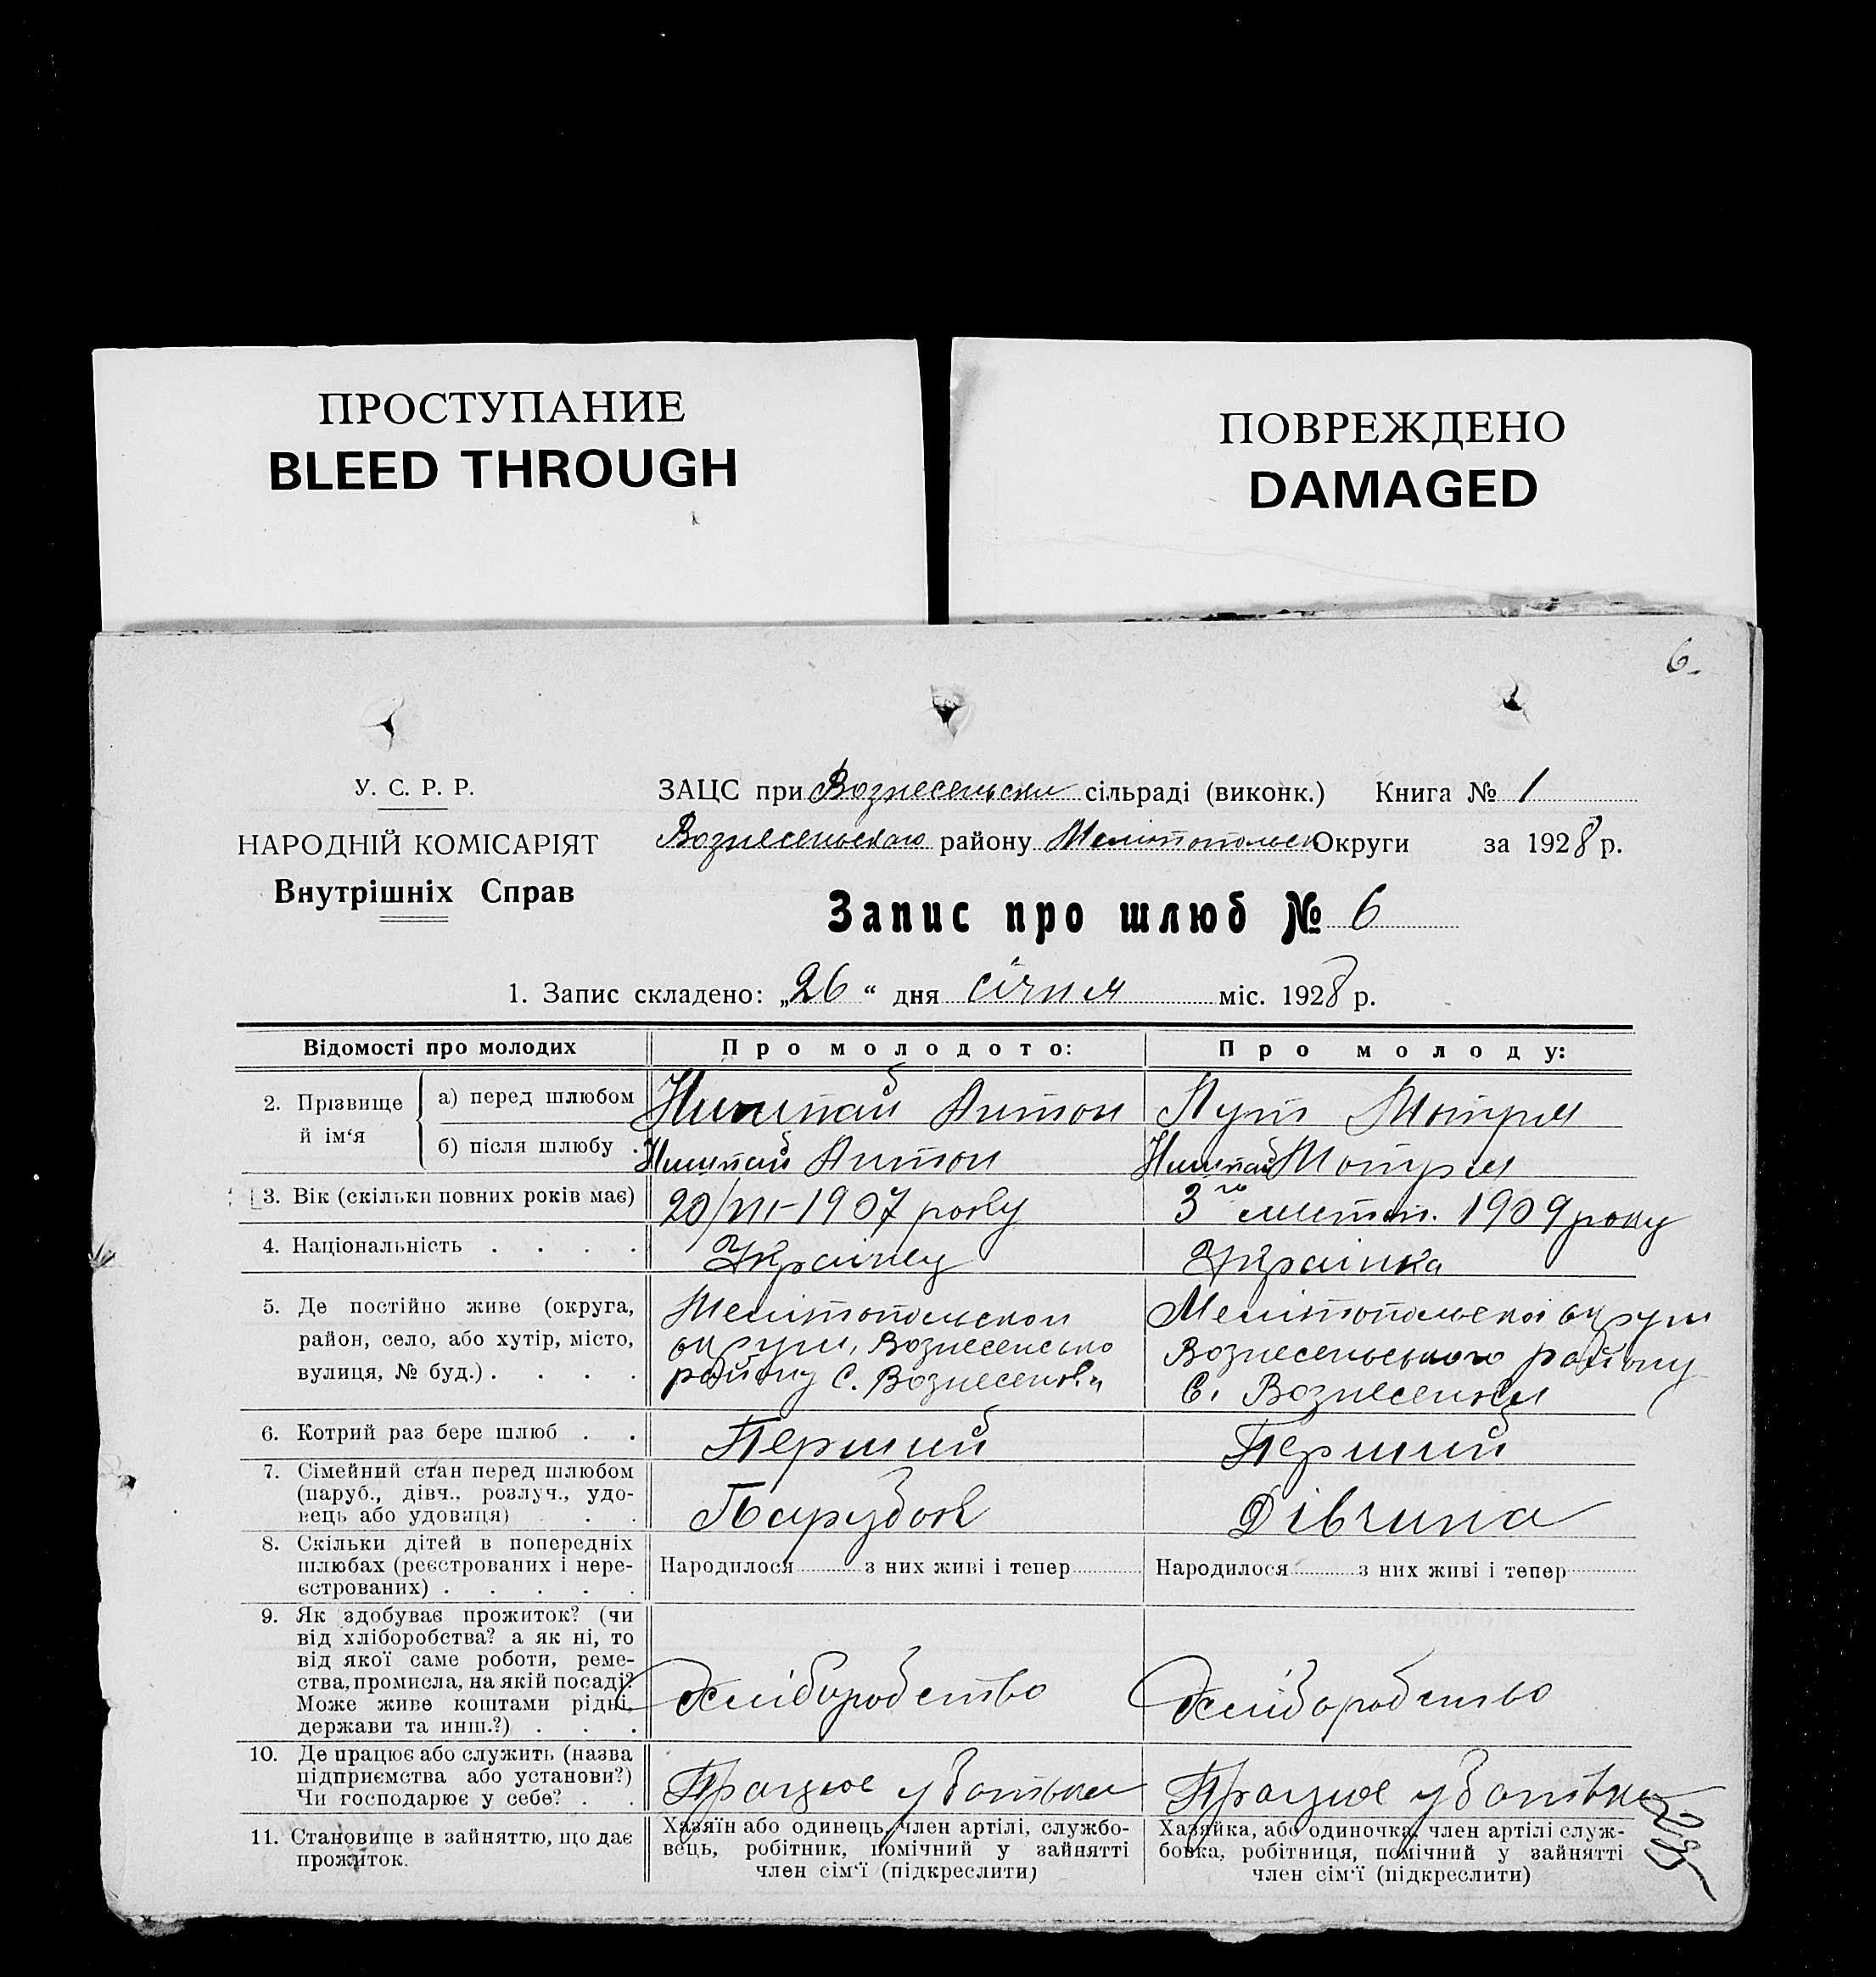 ПРОСТУПАНИЕ
BLEED THROUGH
ПОВРЕЖДЕНО
DAMAGED
6.
У. С. Р. Р.
НАРОДНІЙ КОМІСАРІЯТ
Внутрішніх Справ
ЗАЦС при Вознесенськи сільраді (виконк.) Книга № 1
Вознесенського району Мелітопольск Округи за 1928 р.
Запис про шлюб № 6
1. Запис складено: „26“ дня січня міс. 1928 р.
Відомості про молодих
Про молодого:
Про молоду:
2. Прізвище й ім‘я
а) перед шлюбом
Антон
Мотря
б) після шлюбу .
Антон
Мотря
3. Вік (скільки повних років має)
20/VII-1907 року
3го 1909 року
4. Національність . . . .
Українец
Українка
5. Де постійно живе (округа,
район, село, або хутір, місто,
вулиця, № буд.) . . . .
Мелітопольскои
округи, Вознесенсько
району С. Вознесенки
Мелітопольскоі округи
Вознесенського району
С. Вознесенки
6. Котрий раз бере шлюб . .
Перший
Перший
7. Сімейний стан перед шлюбом
(паруб., дівч., розлуч., удо-
вець або удовиця) . .
Парубок
Дівчина
8. Скільки дітей в попередніх
шлюбах (реєстрованих і нере-
єстрованих) . . . . .
Народилося з них живі і тепер
Народилося з них живі і тепер
9. Як здобуває прожиток? (чи
від хліборобства? а як ні, то
від якої саме роботи, реме-
ства, промисла, на якій посаді?
Може живе коштами рідні,
держави та инш.?) . . .
Хліборобство
Хліборобство
10. Де працює або служить (назва
підприємства або установи?)
Чи господарює у себе? . .
Працює у батька
Працює у батька
11. Становище в зайняттю, що дає
прожиток.
Хазяїн або одинець, член артілі, службо-
вець, робітник, помічний у зайнятті
член сім‘ї (підкреслити)
Хазяйка, або одиночка, член артілі служ-
бовка, робітниця, помічний у зайнятті
член сім‘ї (підкреслити)